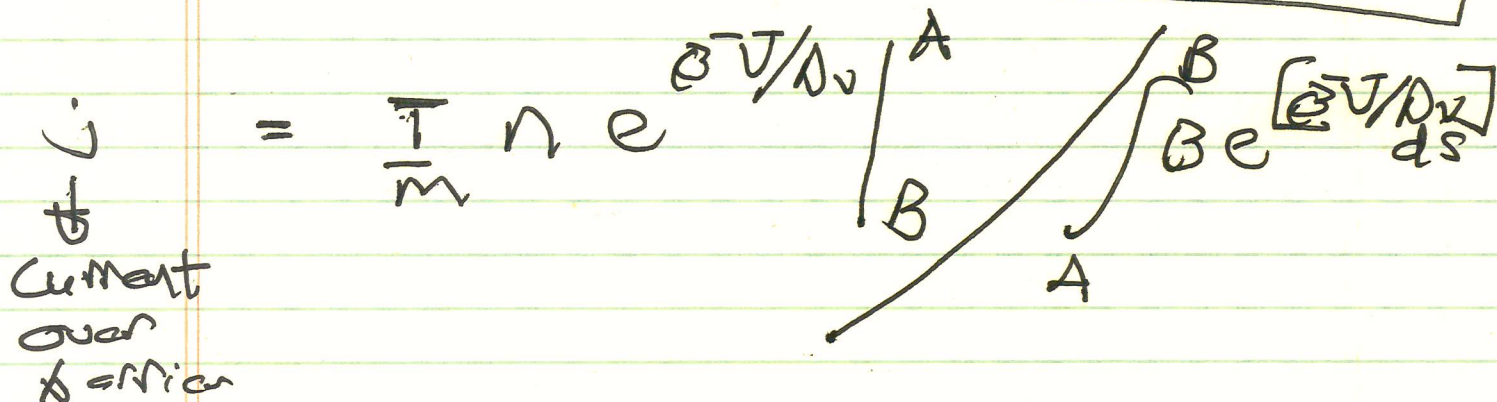 j = T/m n e^{e^-V/Dv} |^A_B / ∫_A^B B e^{[e^-V/Dv]} ds
↓
Current
over
barrier